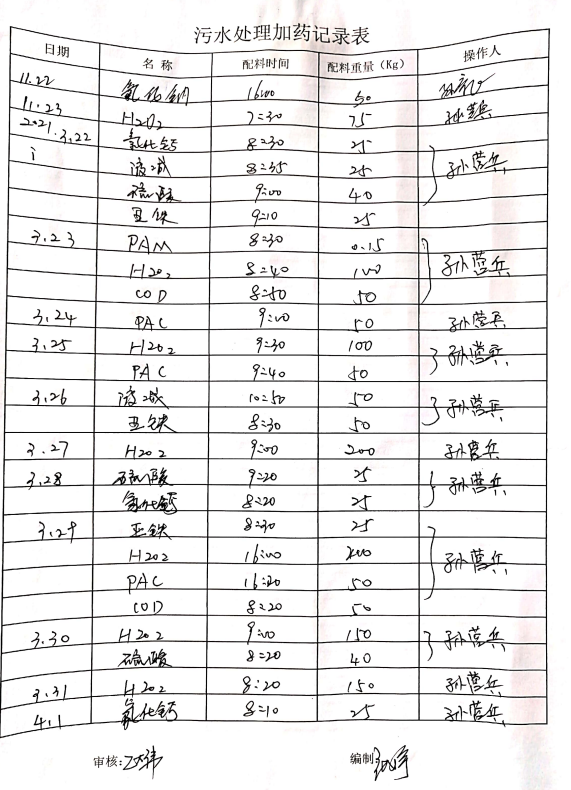 污水处理加药记录表
日期 名称 配料时间 配料重量（Kg） 操作人
11.22 氯化钠 16:00 50
11.23 H2O2 7:30 75 孙营兵
2021.3.22 氯化钙 8:30 25
液碱 8:35 25 孙营兵
硫酸 9:00 40
亚铁 9:10 25
3.23 PAM 8:30 0.15
H2O2 8:40 100 孙营兵
COD 8:50 50
3.24 PAC 9:00 50 孙营兵
3.25 H2O2 9:30 100 孙营兵
PAC 9:40 50
3.26 液碱 10:50 50 孙营兵
亚铁 8:30 50
3.27 H2O2 9:00 200 孙营兵
3.28 硫酸 9:20 25 孙营兵
氯化钙 8:20 25
3.29 亚铁 8:30 25
H2O2 16:00 200 孙营兵
PAC 16:20 50
COD 8:20 50
3.30 H2O2 9:00 150 孙营兵
硫酸 8:20 40
3.31 H2O2 8:20 150 孙营兵
4.1 氯化钙 8:10 25 孙营兵
审核: 编制